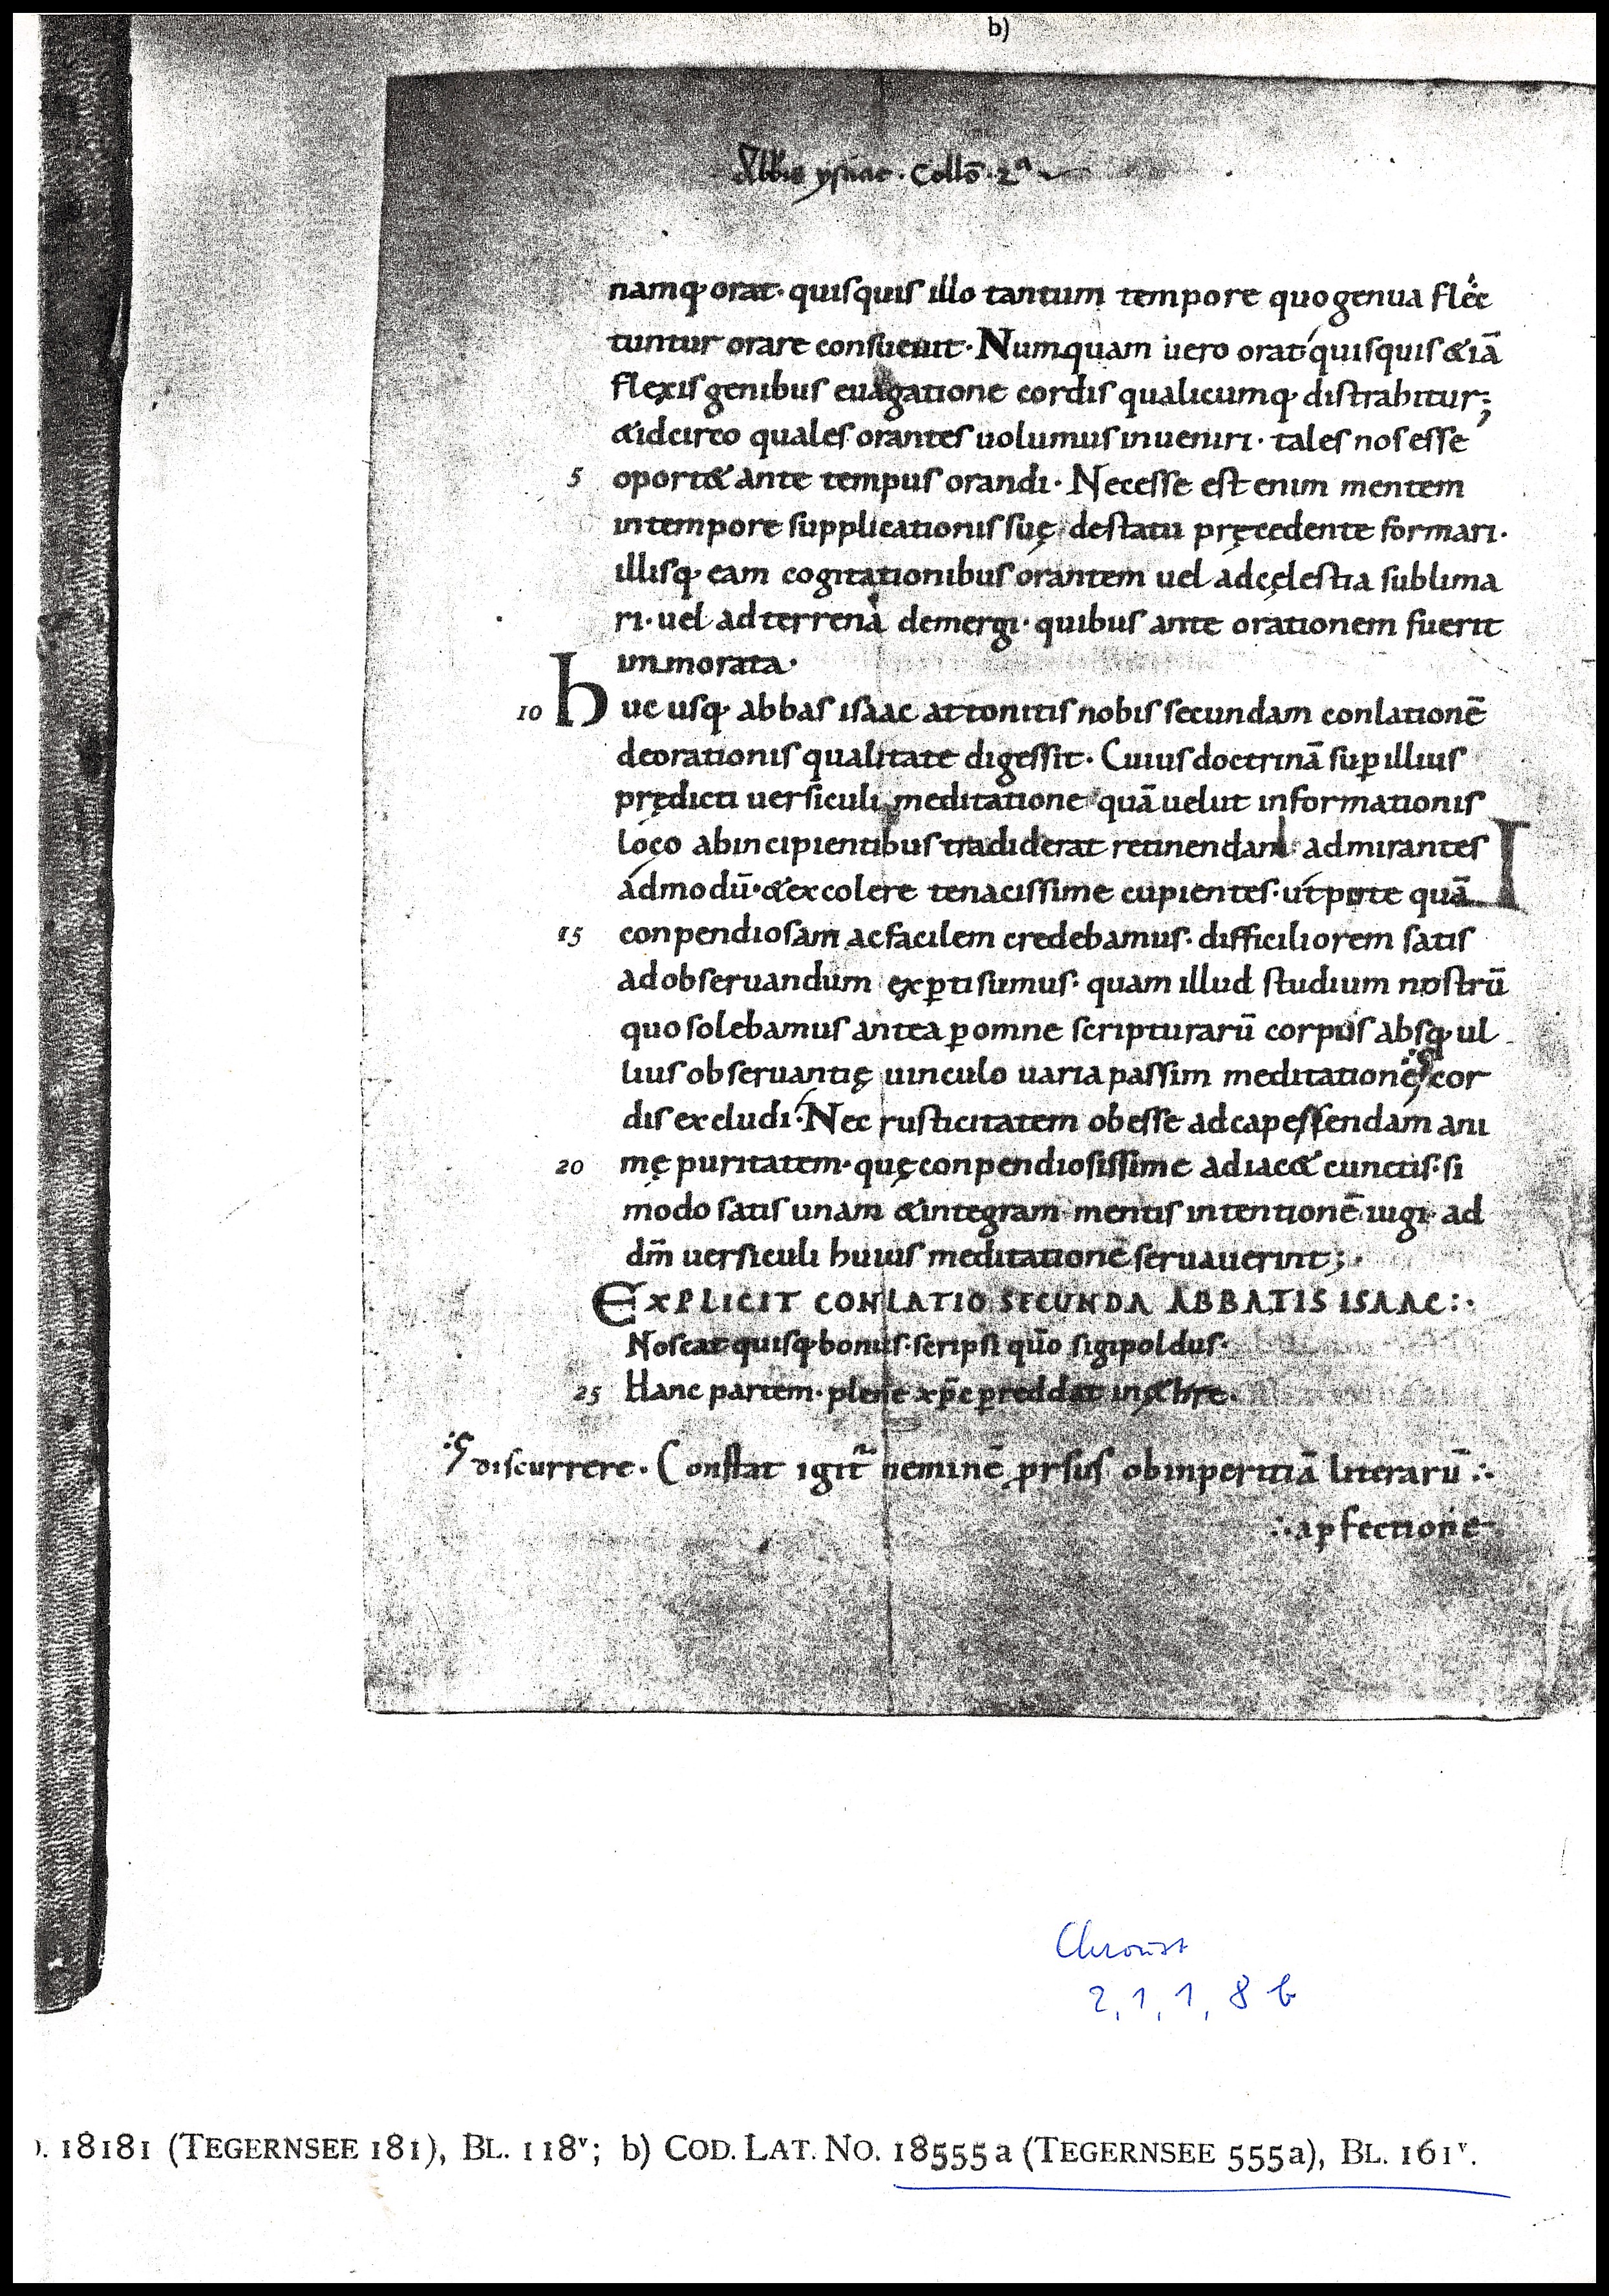 b)
Abb̄is ysaac · Collō · 2ᵃ
namq; orat · quisquis illo tantum tempore quo genua flec
tuntur orare consueuit · Numquam uero orat quisquis & iā
flexis genibus euagatione cordis qualicumq; distrahitur;
& idcirco quales orantes uolumus inueniri · tales nos esse
5 oport& ante tempus orandi · Necesse est enim mentem
in tempore supplicationis suę de statu pręcedente formari ·
illisq; eam cogitationibus orantem uel ad cęlestia sublima
ri · uel ad terrena demergi · quibus ante orationem fuerit
immorata ·
10 Huc usq; abbas isaac attonitis nobis secundam conlationē
de orationis qualitate digessit · Cuius doctrinā suꝑ illius
prędicti uersiculi meditatione quā uelut informationis
loco ab incipientibus tradiderat retinendam admirantes
admodū · & excolere tenacissime cupientes · utpote quā
15 conpendiosam ac facilem credebamus · difficiliorem satis
ad obseruandum exꝑti sumus · quam illud studium nostrū
quo solebamus antea ꝑ omne scripturarū corpus absq; ul
lius obseruantię uinculo uaria passim meditatione cor
dis excludi · Nec rusticitatem obesse ad capessendam ani
20 mę puritatem · quę conpendiosissime adiac& cunctis · si
modo satis unam & integram mentis intentionē iugi ad
dm̄ uersiculi huius meditationē seruauerint ;·
EXPLICIT CONLATIO SECUNDA ABBATIS ISAAC :·
Noscat quisq; bonus · scripsi quō sigipoldus ·
25 Hanc partem · plene xp̄e p reddat in &hre ·
discurrere · Constat igit᷑ neminē ꝓrsus ob inperitiā literarū ∴
∴ a ꝑfectione
Chroust
2, 1, 1, 8 b
). 18181 (TEGERNSEE 181), BL. 118ᵛ; b) COD. LAT. NO. 18555a (TEGERNSEE 555a), BL. 161ᵛ.